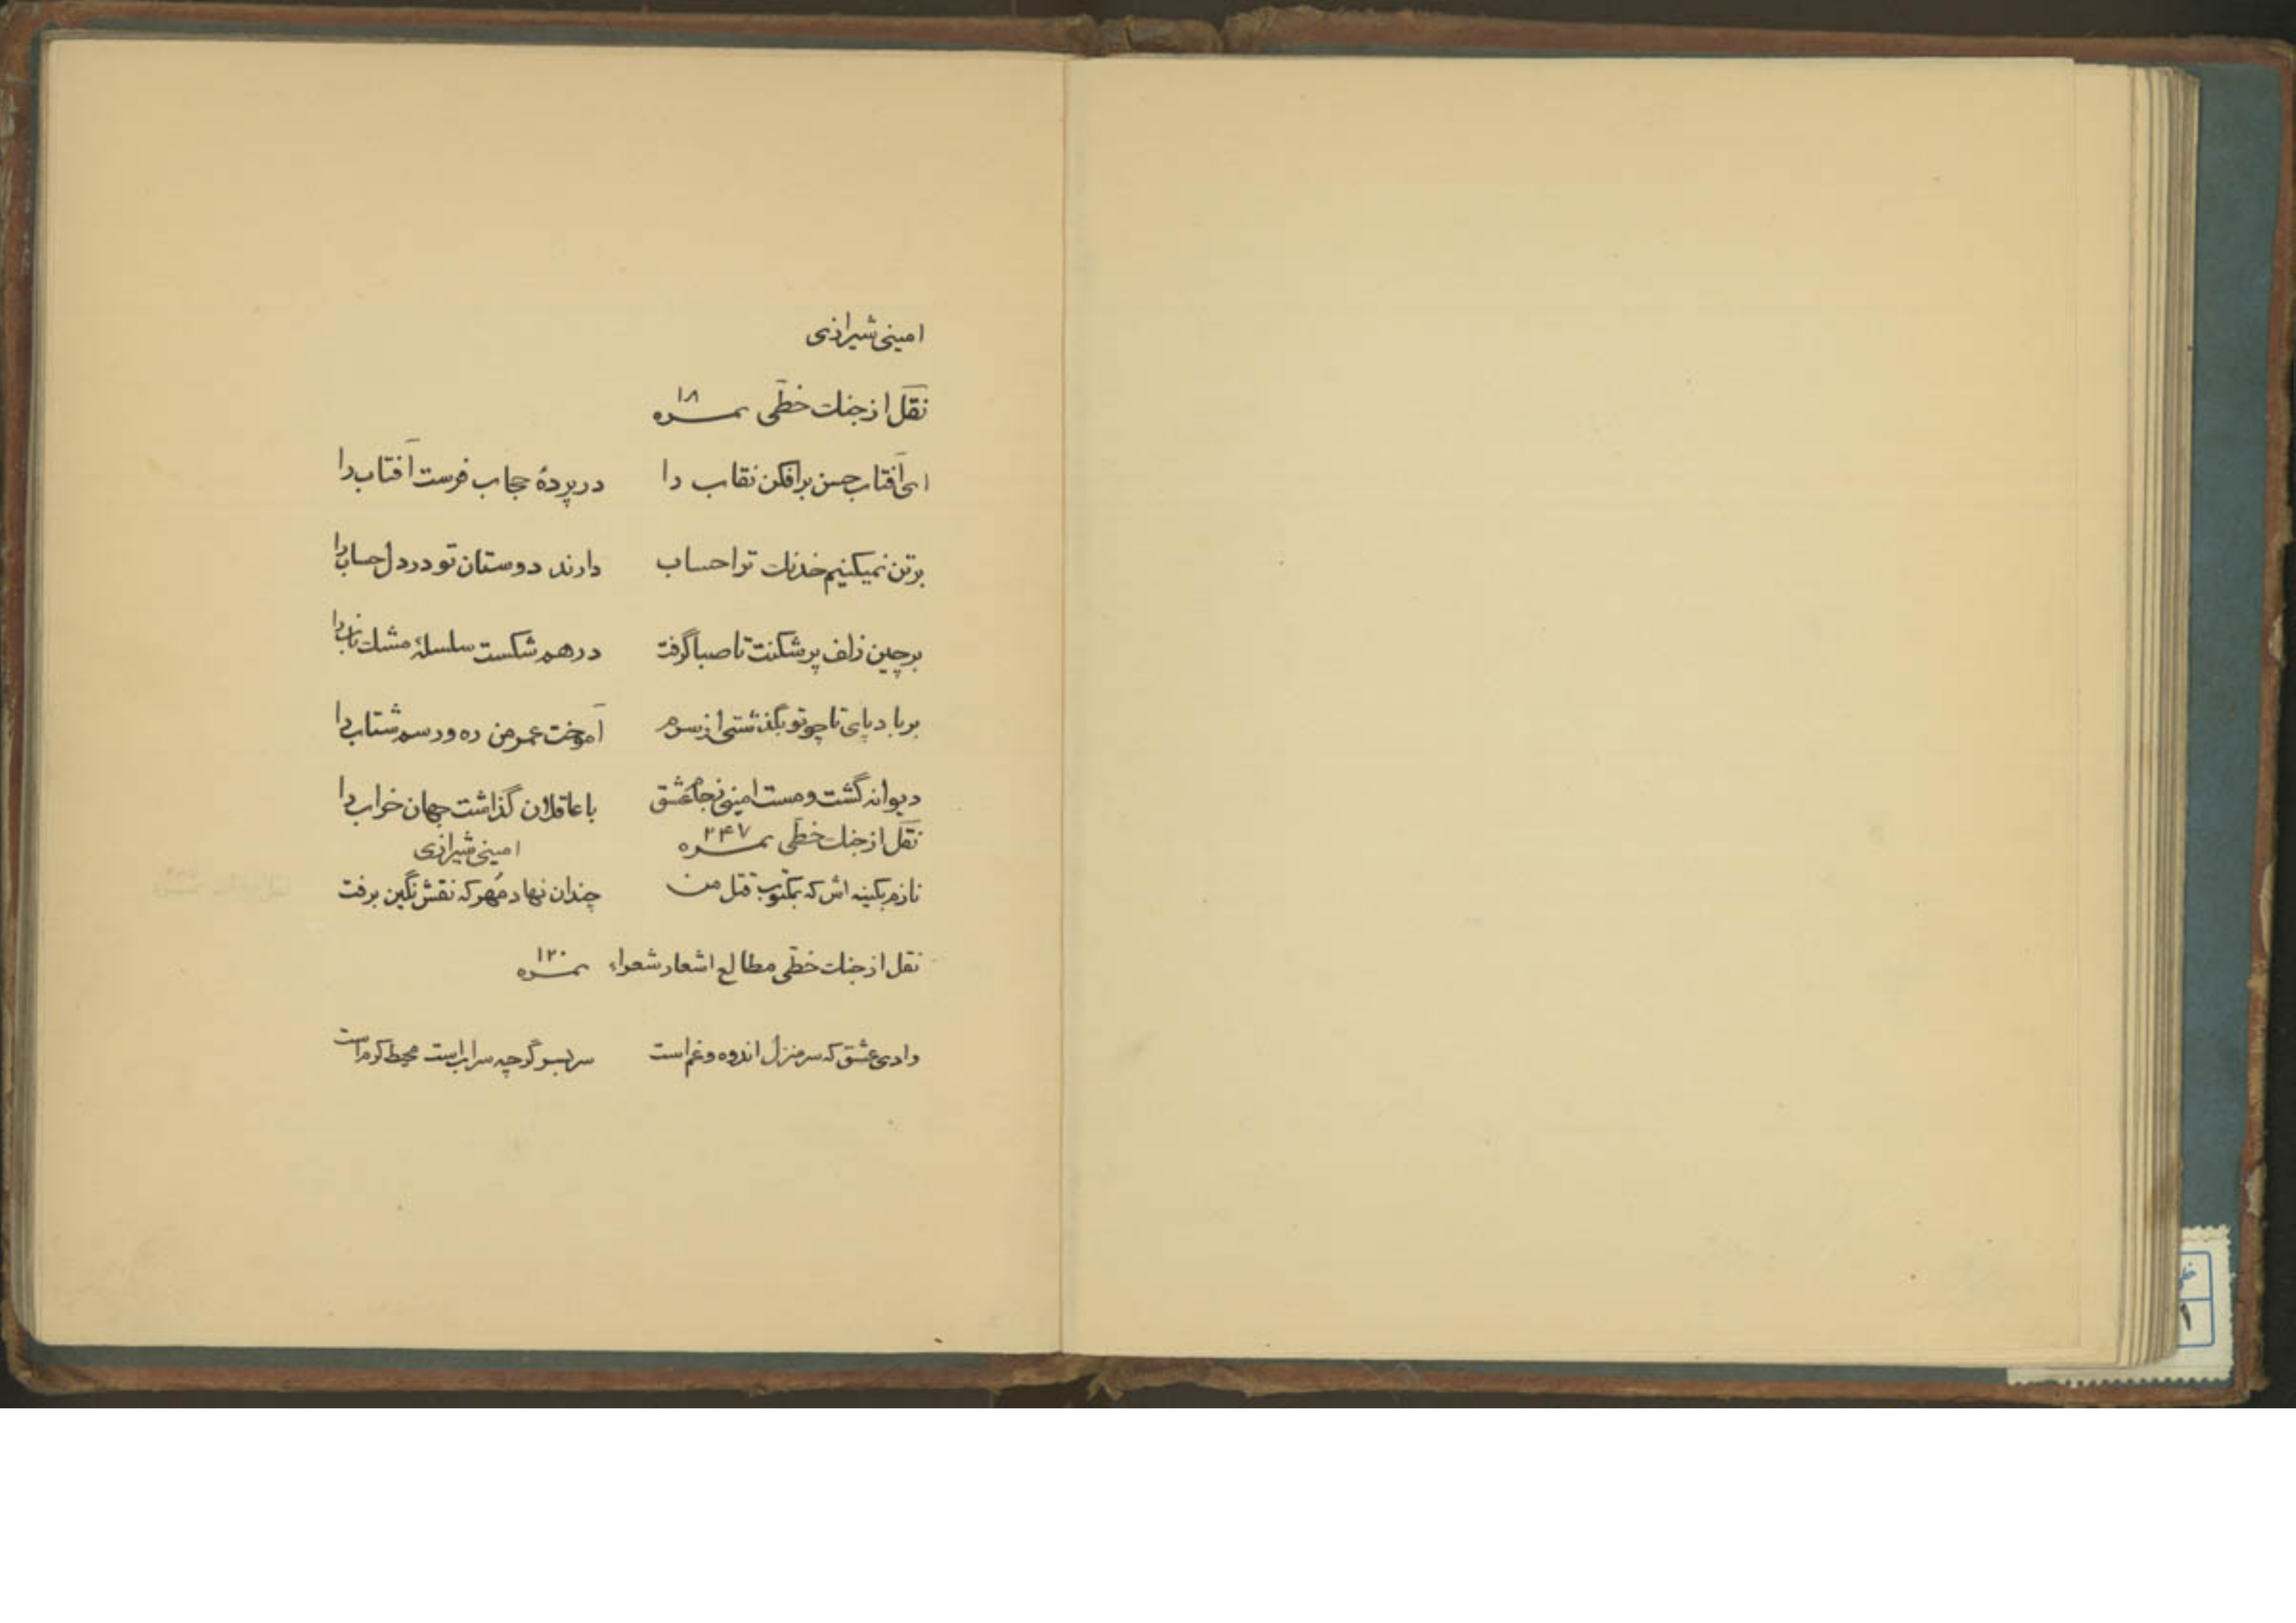 امینی شیرازی
نقل از جنک خطّی نمره ۱۸
ای آفتاب حسن برافکن نقاب را در پردهٔ حجاب فرست آفتاب را
برتن نمیکنیم خدنک ترا حساب دارند دوستان تو در دل حساب را
برچین زلف پرشکنت تا صبا گرفت درهم شکست سلسلهٔ مشک ناب را
برباد پای تا چو تو بگذشتی از سرم آموخت عمر من ره و رسم شتاب را
دیوانه گشت و مست امینی ز جام عشق با عاقلان گذاشت جهان خراب را
نقل از جنک خطّی نمره ۲۴۷
امینی شیرازی
نازم بکینه اش که بمکتوب قتل من چندان نهاد مُهر که نقش نگین برفت
نقل از جنک خطّی مطالع اشعار شعراء نمره ۱۲۰
وادی عشق که سر منزل اندوه و غم است سربسر گرچه سراب است محیط کرم است
خطی
۱